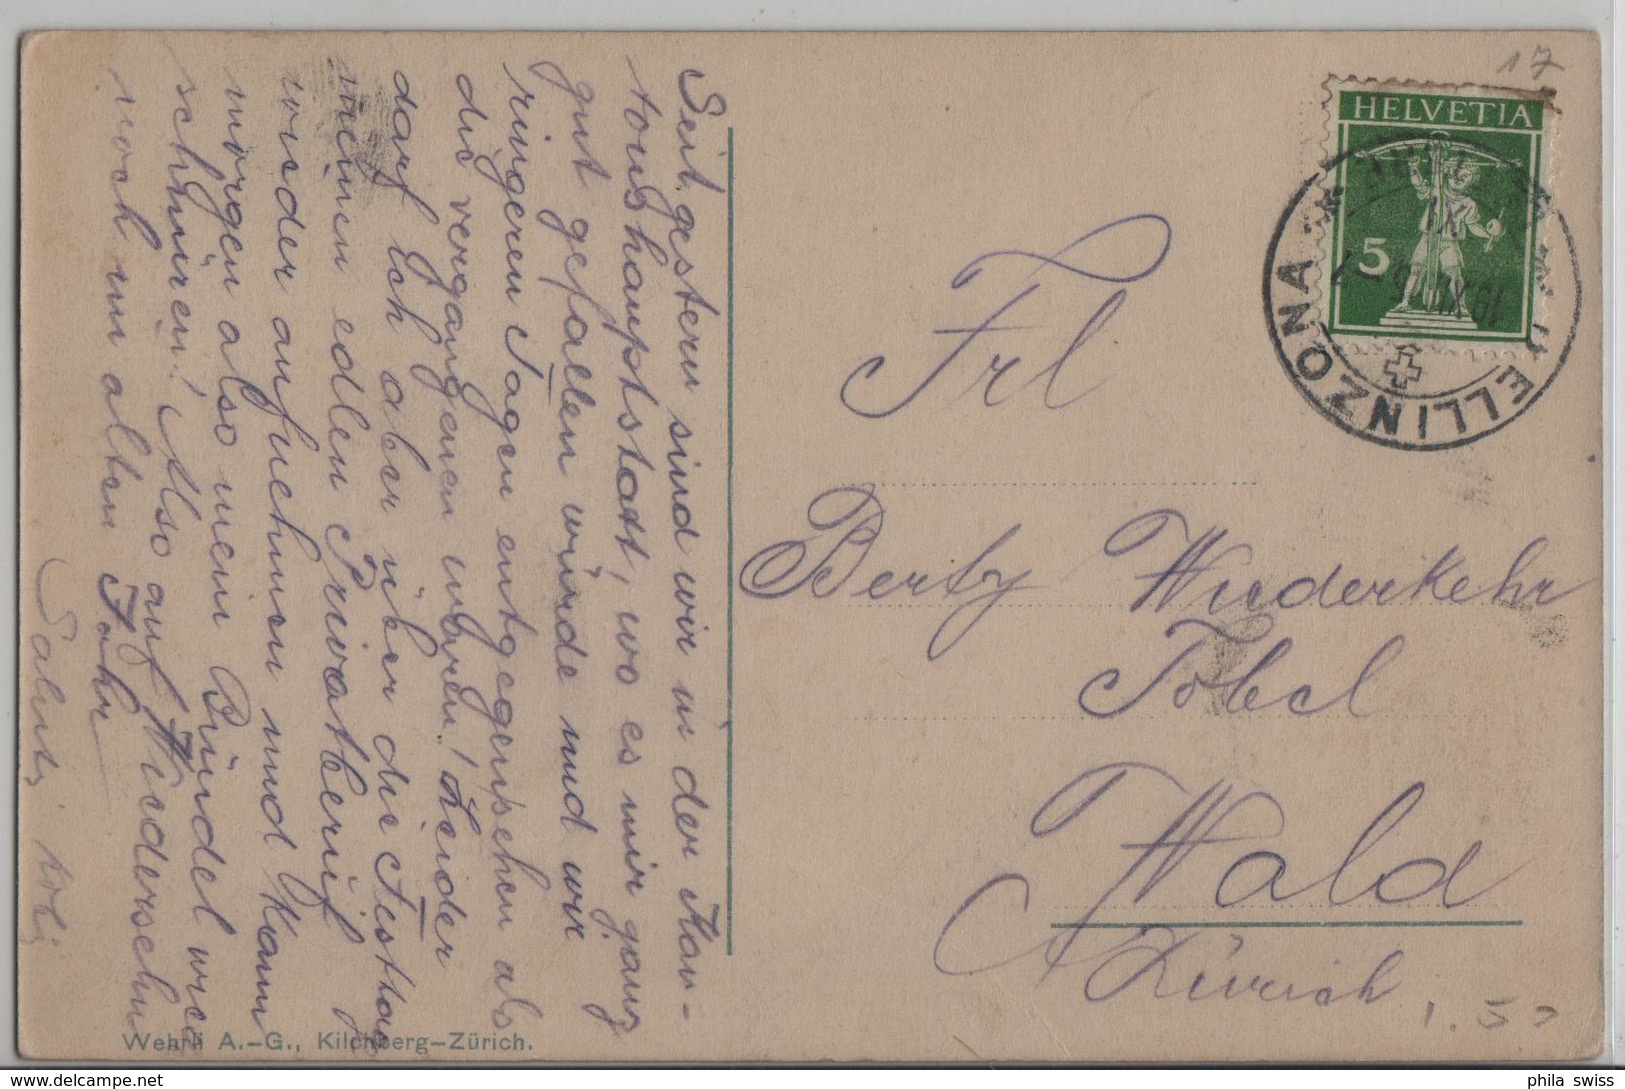 Seit gestern sind wir in der Kan-
tonshauptstadt, wo es mir ganz
gut gefallen würde und wir
ringeren Tagen entgegensehen als
die vergangenen waren! Leider
darf ich aber über die Festtage
meinen edlen Privatberuf
wieder aufnehmen und kann
morgen also mein Bündel wie
schnüren! Also auf Wiedersehn
noch im alten Jahr
17
HELVETIA
5
BELLINZONA
Frl
Berty Wiederkehr
Tobel
Wald
Zürich
Wehrli A.-G., Kilchberg-Zürich.
phila swiss